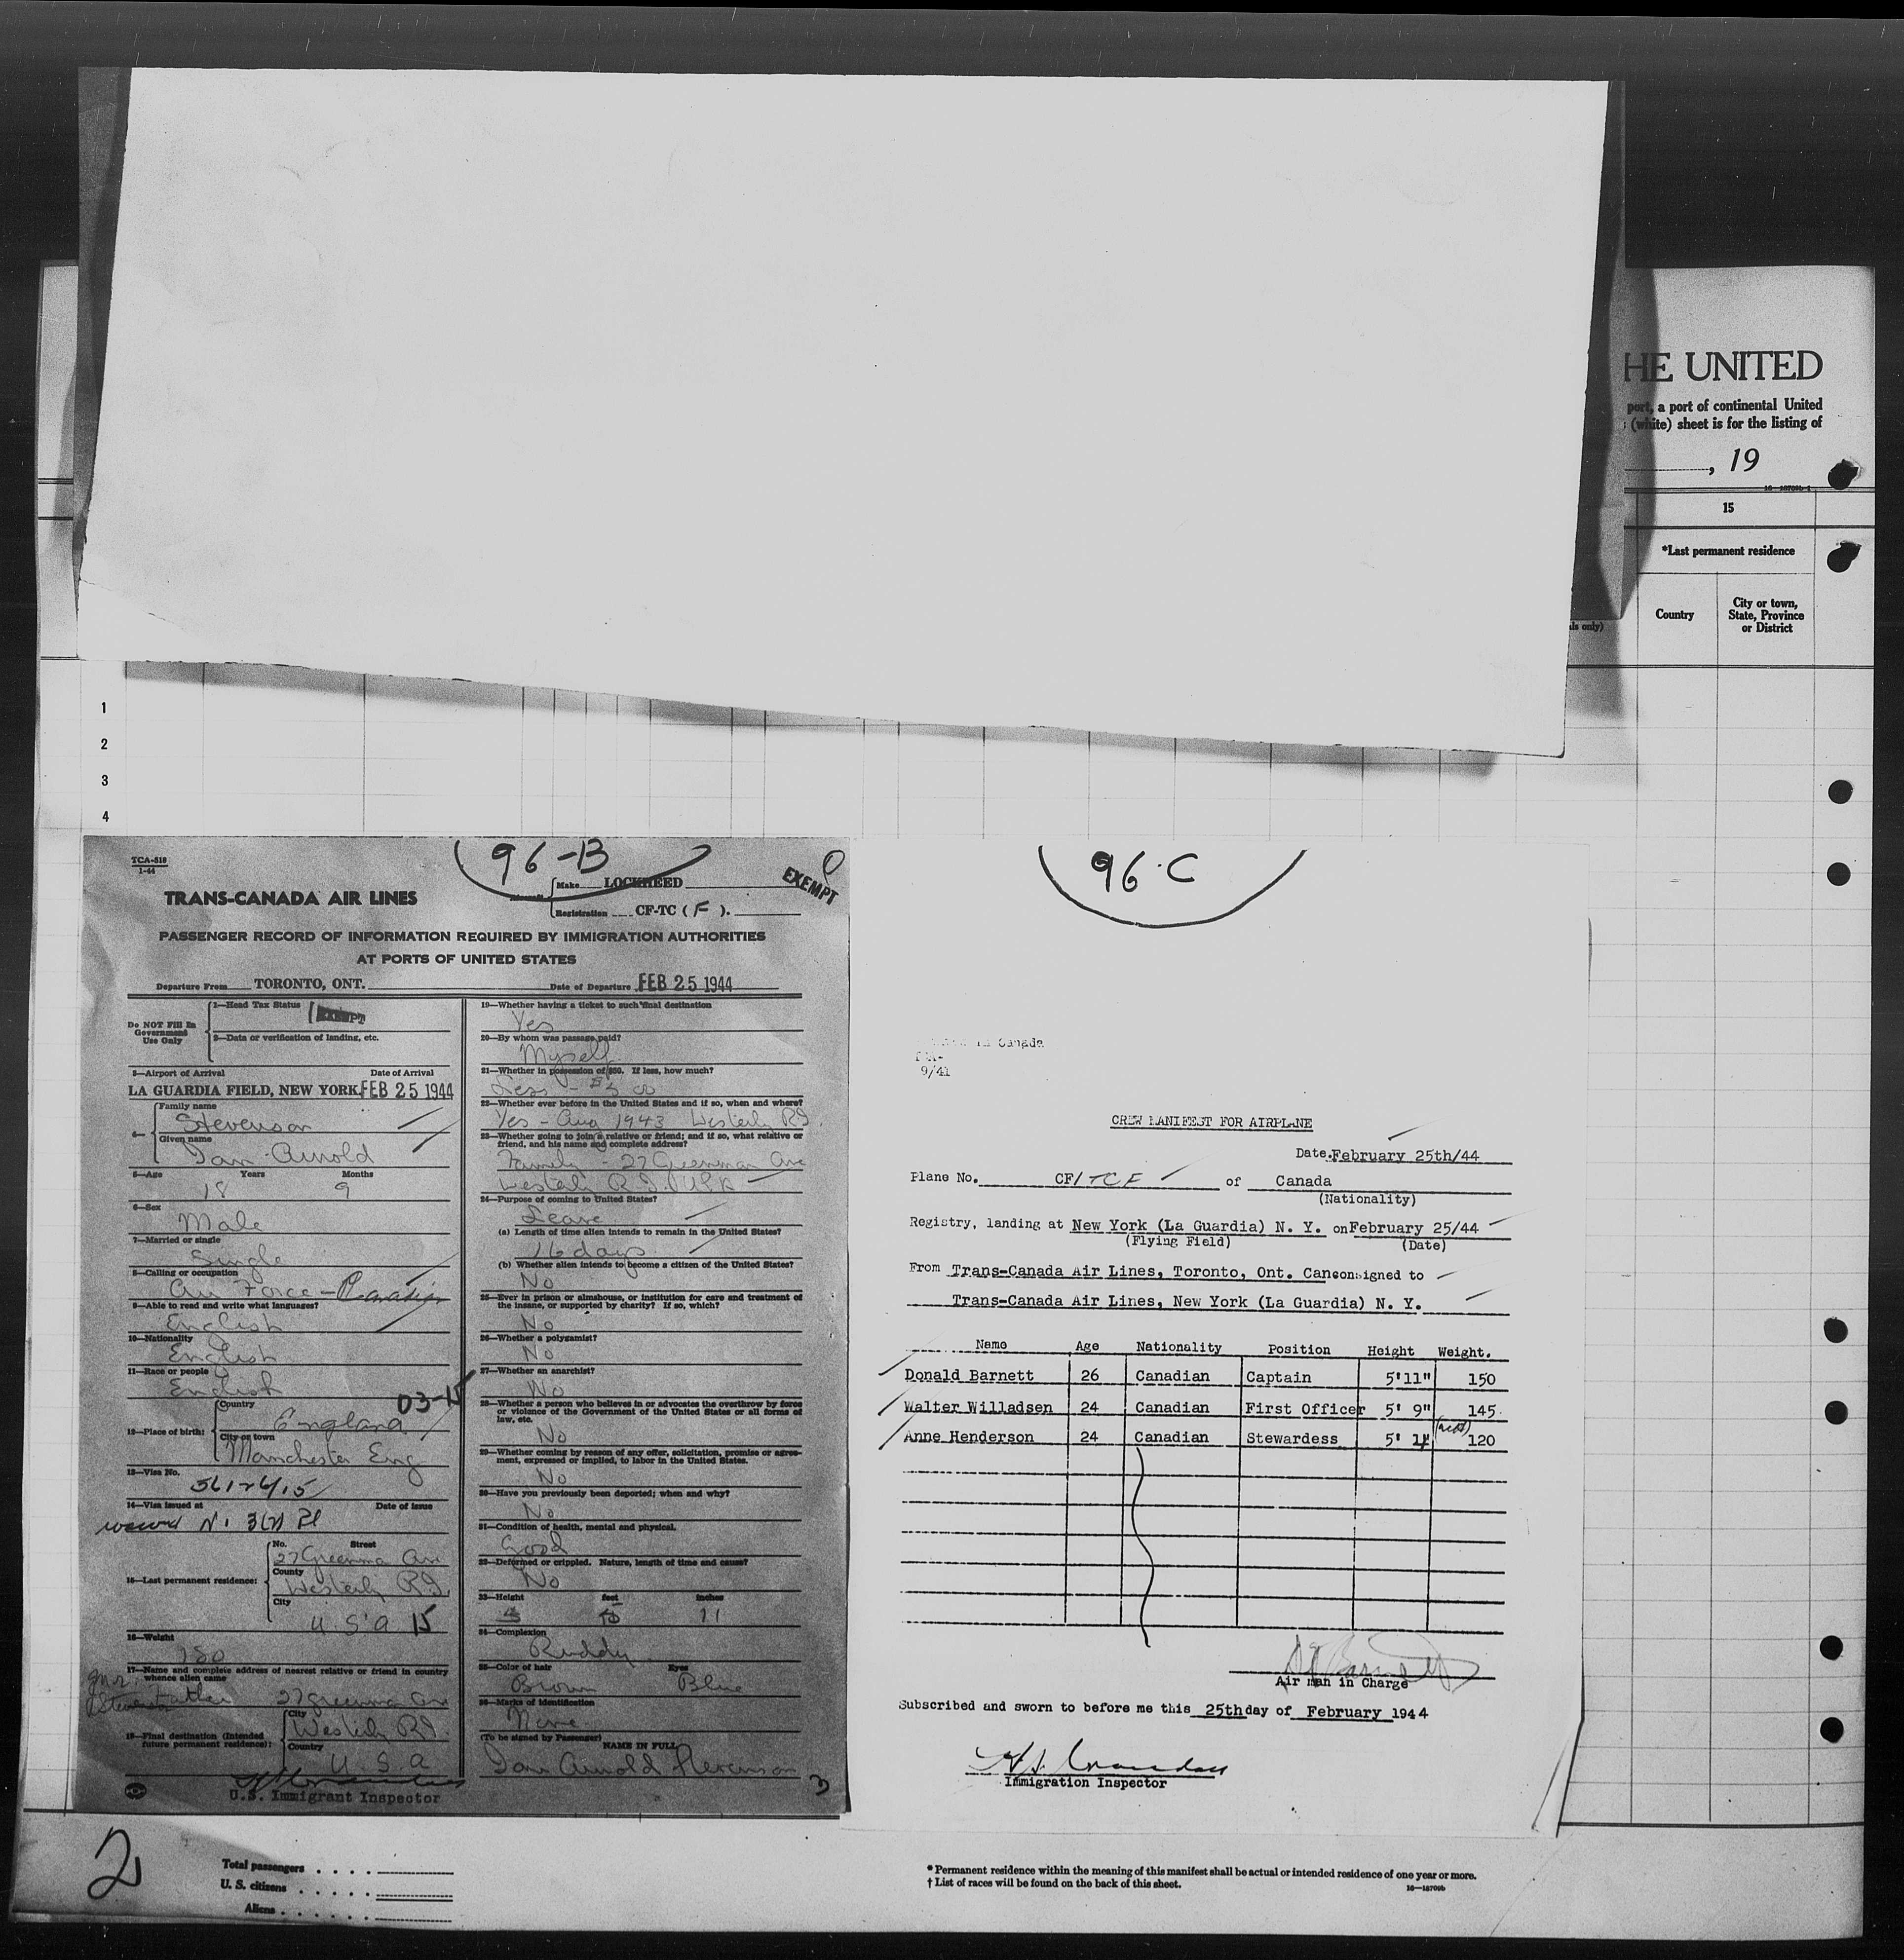 HE UNITED
port, a port of continental United
(white) sheet is for the listing of
, 19
15
*Last permanent residence
Country
City or town,
State, Province
or District
ls only)
1
2
3
4
96-B
TCA-518
1-44
EXEMPT
Make LOCKHEED
TRANS-CANADA AIR LINES
Registration CF-TC ( F ).
PASSENGER RECORD OF INFORMATION REQUIRED BY IMMIGRATION AUTHORITIES
AT PORTS OF UNITED STATES
Departure From TORONTO, ONT. Date of Departure FEB 25 1944
Do NOT Fill In
Government
Use Only
1—Head Tax Status EXEMPT
2—Data or verification of landing, etc.
3—Airport of Arrival Date of Arrival
LA GUARDIA FIELD, NEW YORK. FEB 25 1944
4—
Family name
Stevenson
Given name
Ian Arnold
5—Age Years Months
18 9
6—Sex
Male
7—Married or single
Single
8—Calling or occupation
Air Force - Canadian
9—Able to read and write what languages?
English
10—Nationality
English
11—Race or people
English
03-15
12—Place of birth:
Country
England
City or town
Manchester Eng
13—Visa No.
14—Visa issued at Date of Issue
15—Last permanent residence:
No. Street
27 Greenman Av
County
Westerly R.I.
City
U S A 15
16—Weight
180
17—Name and complete address of nearest relative or friend in country
whence alien came
Father 27 Greenman Av
18—Final destination (Intended
future permanent residence):
City
Westerly R.I.
Country
U. S. A
U.S. Immigrant Inspector
19—Whether having a ticket to such final destination
Yes
20—By whom was passage paid?
Myself
21—Whether in possession of $50. If less, how much?
Less -
22—Whether ever before in the United States and if so, when and where?
Yes - Aug 1943 Westerly RI
23—Whether going to join a relative or friend; and if so, what relative or
friend, and his name and complete address?
Family - 27 Greenman Ave
Westerly R.I.
24—Purpose of coming to United States?
Leave
(a) Length of time alien intends to remain in the United States?
16 days
(b) Whether alien intends to become a citizen of the United States?
No
25—Ever in prison or almshouse, or institution for care and treatment of
the insane, or supported by charity? If so, which?
No
26—Whether a polygamist?
No
27—Whether an anarchist?
No
28—Whether a person who believes in or advocates the overthrow by force
or violence of the Government of the United States or all forms of
law, etc.
No
29—Whether coming by reason of any offer, solicitation, promise or agree-
ment, expressed or implied, to labor in the United States.
No
30—Have you previously been deported; when and why?
No
31—Condition of health, mental and physical.
Good
32—Deformed or crippled. Nature, length of time and cause?
No
33—Height feet inches
5 11
34—Complexion
Ruddy
35—Color of hair Eyes
Brown Blue
36—Marks of identification
None
(To be signed by Passenger) NAME IN FULL
Ian Arnold Stevenson
3
96-C
in Canada
9/41
CREW MANIFEST FOR AIRPLANE
Date. February 25th/44
Plane No. CF/TCF of Canada
(Nationality)
Registry, landing at New York (La Guardia) N. Y. on February 25/44
(Flying Field) (Date)
From Trans-Canada Air Lines, Toronto, Ont. Can consigned to
Trans-Canada Air Lines, New York (La Guardia) N. Y.
Name Age Nationality Position Height Weight.
Donald Barnett 26 Canadian Captain 5'11" 150
Walter Willadsen 24 Canadian First Officer 5' 9" 145
Anne Henderson 24 Canadian Stewardess 5' 4" 120
Air Man in Charge
Subscribed and sworn to before me this 25th day of February 1944
Immigration Inspector
2
Total passengers . . . .
U. S. citizens . . . . .
Aliens . . . . . .
* Permanent residence within the meaning of this manifest shall be actual or intended residence of one year or more.
† List of races will be found on the back of this sheet.